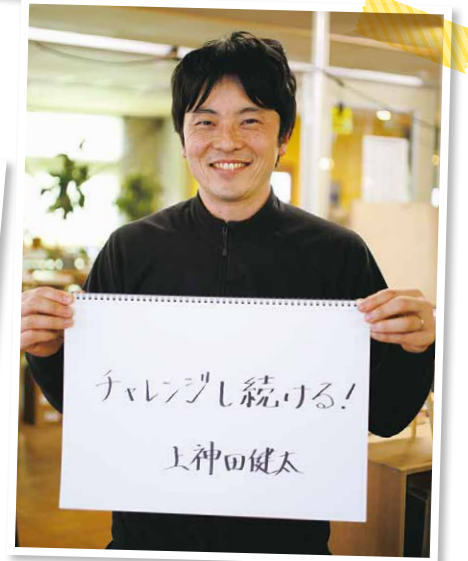 チャレンジし続ける!
上神田健太